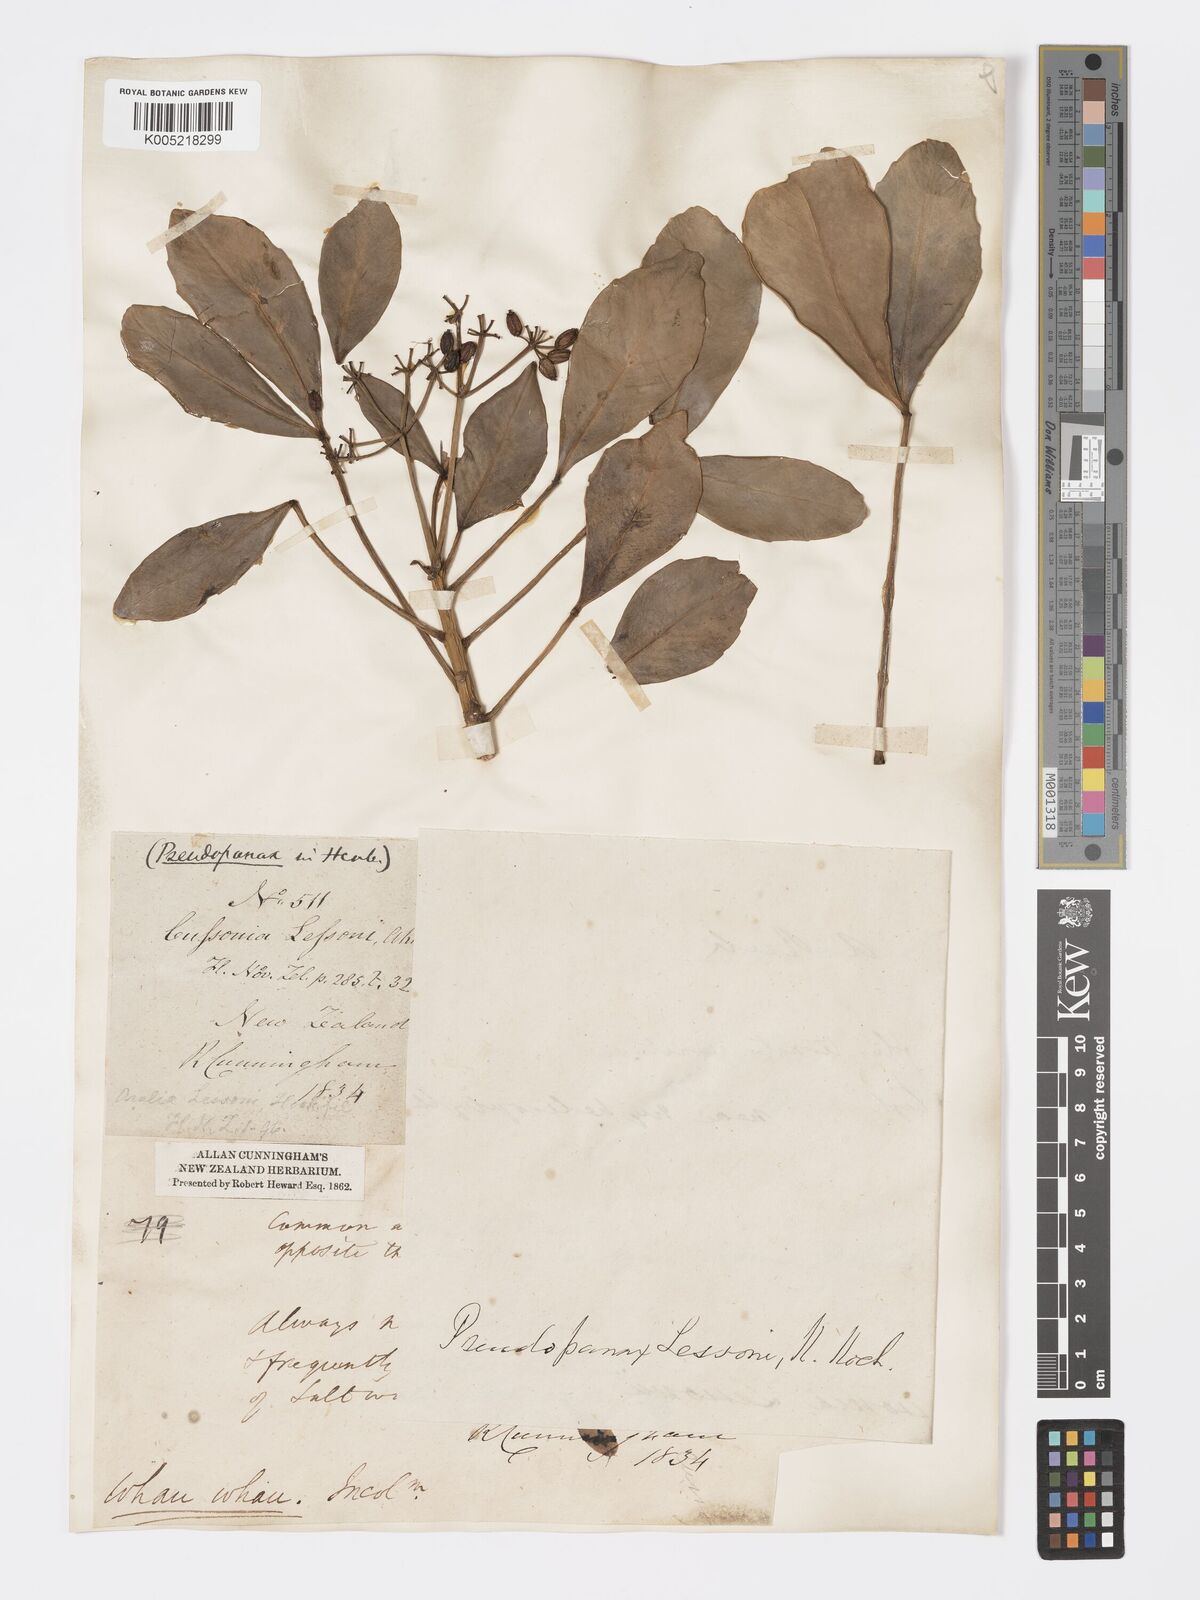 ROYAL BOTANIC GARDENS KEW
K005218299
(Pseudopanax in Herb.)
No. 511
Cussonia Lessoni,
Fl. Nov. Zel. p. 285. t. 32
New Zealand
R Cunningham
1834
Aralia Lessoni, Hook fil
Fl. N. Z. 1. 96.
ALLAN CUNNINGHAM'S
NEW ZEALAND HERBARIUM.
Presented by Robert Heward Esq. 1862.
79
Common a
opposite th
Always n
& frequently
of Salt wa
Whau whau. Incol m.
Pseudopanax Lessoni, K. Koch.
R Cunningham
1834
inches
centimetres
Density
Don Williams
M001318
Royal Botanic Gardens
Kew
copyright reserved
10
9
8
7
6
5
4
3
2
1
0
cm